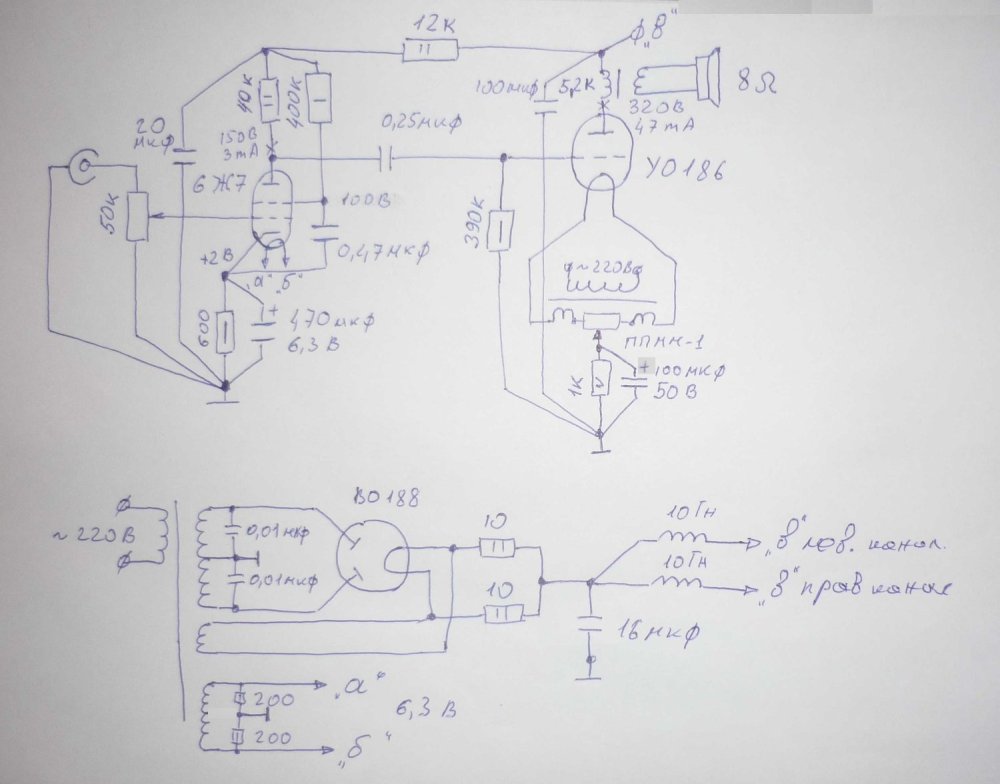 12к
ф„В“
40к
400к
100мкф
5,2к
8Ω
20
мкф
150В
3mA
0,25мкф
320В
47mA
6Ж7
УО186
50к
100В
390к
0,47мкф
+2В
„а“ „б“
~220В
600
+
470мкф
6,3В
ППМН-1
1к
+
100мкф
50В
ВО188
~220В
0,01мкф
0,01мкф
10
10
10Гн
„В“ лев. канал.
10Гн
„В“ прав канал
16мкф
„а“
200
6,3В
200
„б“